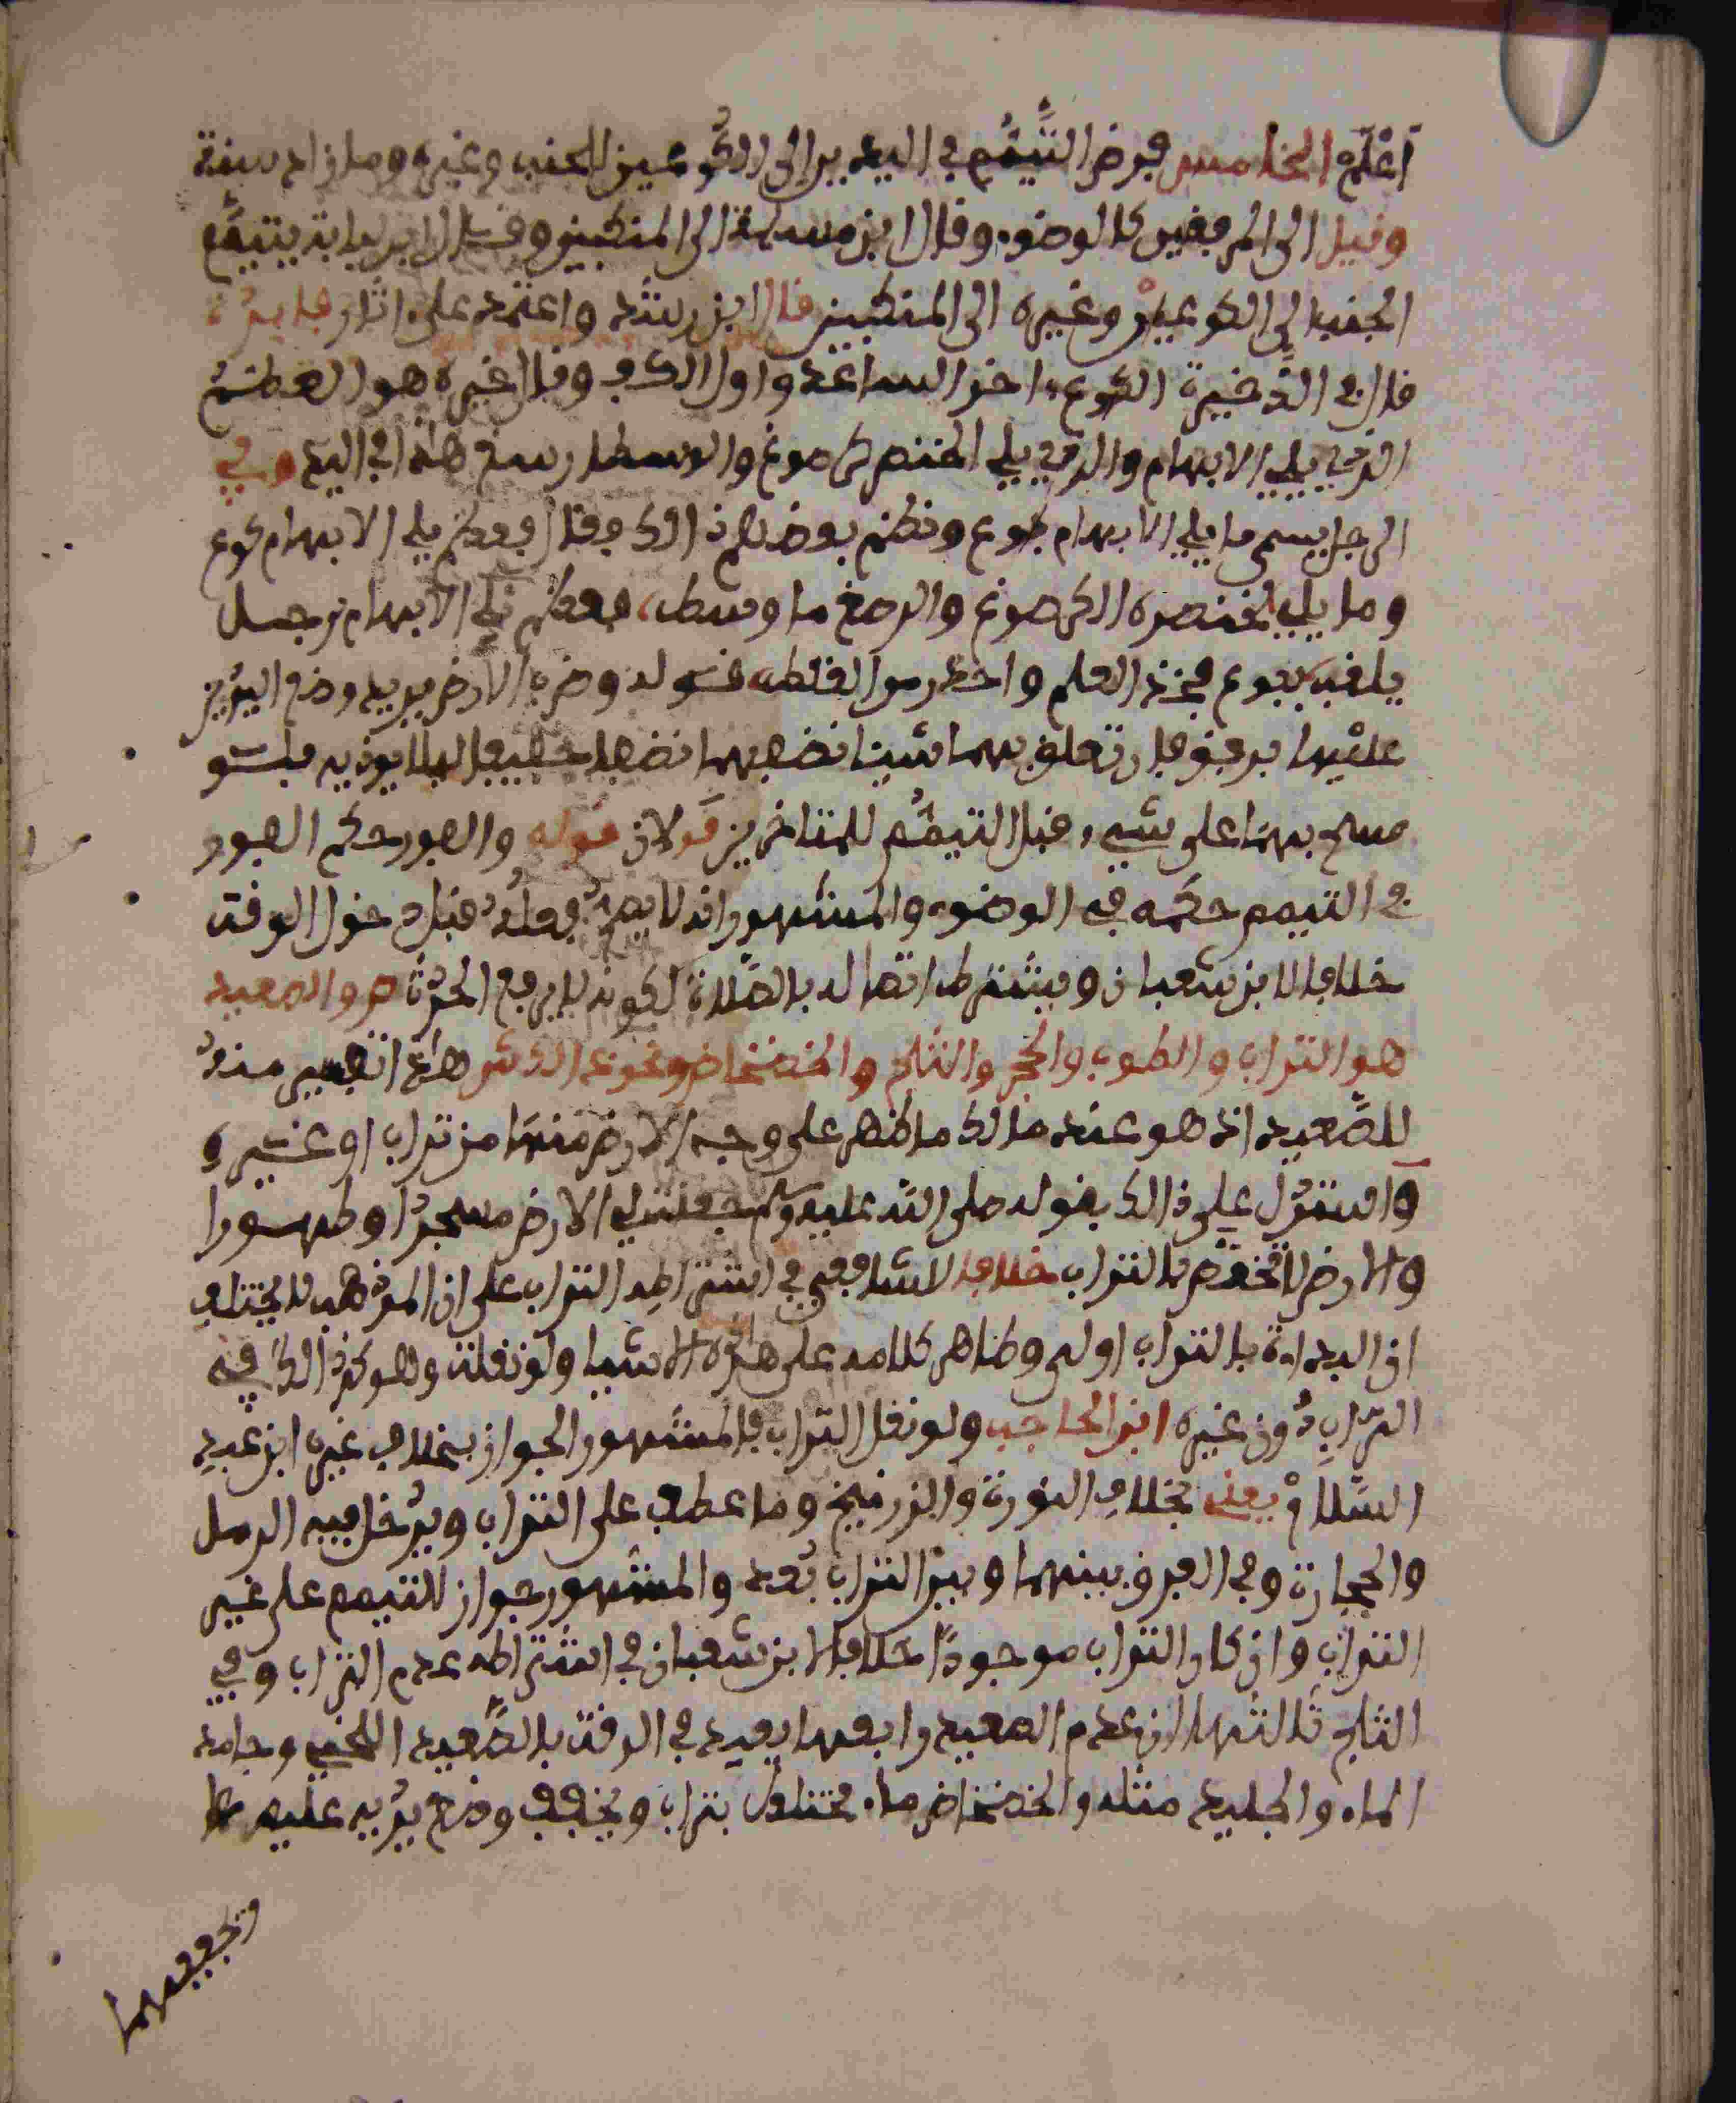 اعلم الخامس فرض التيمم في اليدين الى الكوعين للجنب وغيره وما زاد سنة
وقيل الى المرفقين كالوضوء وقال ابن مسلمة الى المنكبين وقال ابن لبابة يتيمم
الجنب الى الكوعين وغيره الى المنكبين قال ابن رشد واعتمد على اثار
قال في الذخيرة الكوع اخر الساعد واول الكف وقال غيره هو العظم
الذي يلي الابهام والذي يلي الخنصر كرسوغ والاوسط رسغ هذا في اليد وفي
الرجل يسمى ما يلي الابهام كوع ونظم بعضهم ذالك فقال فعظم يلي الابهام كوع
وما يلي لخنصره الكرصوغ والرصغ ما وسط وعظم يلي الابهام رجل
يلقب ببوع فخذ العلم واحذر من الغلط قوله وضرب الارض بيديه وضع اليدين
عليها برفق فان تعلق بهما شيئا نفضهما نفضا خفيفا ليلا يوذيه فلو
مسح بهما على شيء قبل التيمم للمتاخرين قولان قوله والفور حكم الفور
في التيمم حكمه في الوضوء والمشهور انه لا يصح فعله قبل دخول الوقت
خلافا لابن شعبان ويشترط اتصاله بالصلاة لكونه لا يرفع الحدث ص والصعيد
هو التراب والطوب والحجر والثلج والخضخاض ونحو ذالك ش هذا تفسير منه
للصعيد اذ هو عند مالك ما ظهر على وجه الارض منها من تراب او غيره
واستدل على ذالك بقوله صلى الله عليه وسلم جعلت لي الارض مسجدا وطهورا
والارض لا تختص بالتراب خلافا للشافعي في اشتراطه التراب على ان المذهب لا يختلف
ان البداءة بالتراب اولى وظاهر كلامه على هذه الاشيا ولو نقلت وهو كذالك في
التراب دون غيره ابن الحاجب ولو نقل التراب فالمشهور الجواز بخلاف غيره ابن عبد
السلام يعني بخلاف النورة والزرنيخ وما عطف على التراب ويدخل فيه الرمل
والحجارة وفي الفرق بينهما وبين التراب بعد والمشهور جواز التيمم على غير
التراب وان كان التراب موجودا خلافا لابن شعبان في اشتراطه عدم التراب وفي
الثلج ثالثها ان عدم الصعيد ورابعها يعيد في الوقت بالصعيد اللخمي وجامد
الماء والجليد مثله والخضخاض ماء مختلط بتراب ويخفف وضع يديه عليه
وتجفيفهما